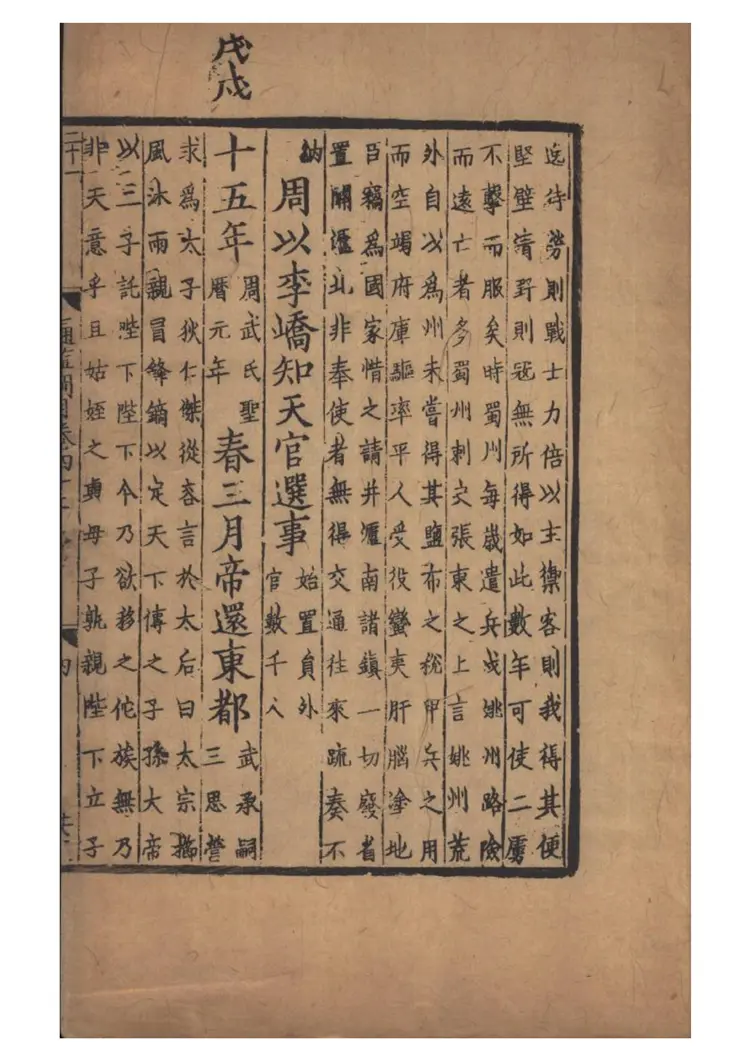 戊戌
迄待勞則戰士力倍以主禦客則我得其便
堅壁清野則寇無所得如此數年可使二虜
不擊而服矣時蜀州每歲遣兵戍姚州路險
而遠亡者多蜀州刺史張柬之上言姚州荒
外自以爲州未嘗得其鹽布之稅甲兵之用
而空竭府庫驅率平人受役蠻夷肝腦塗地
臣竊爲國家惜之請并瀘南諸鎮一切廢省
置關瀘北非奉使者無得交通往來疏奏不
納
周以李嶠知天官選事
始置員外
官數千人
十五年
周武氏聖
曆元年
春三月帝還東都
武承嗣
三思營
求爲太子狄仁傑從容言於太后曰太宗櫛
風沐雨親冒鋒鏑以定天下傳之子孫大帝
以三子託陛下陛下今乃欲移之佗族無乃
非天意乎且姑姪之與母子孰親陛下立子
通鑑綱目卷四十